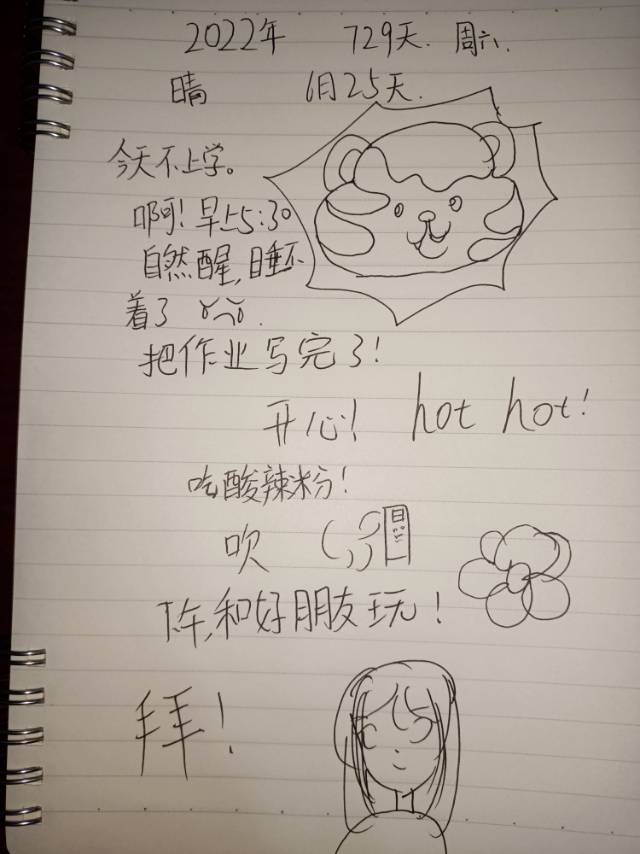 2022年 729天. 周六.
晴 6月25天.
今天不上学。
啊!早上5:30
自然醒,睡不
着了
把作业写完了!
开心! hot hot!
吃酸辣粉!
吹
下午,和好朋友玩!
拜!